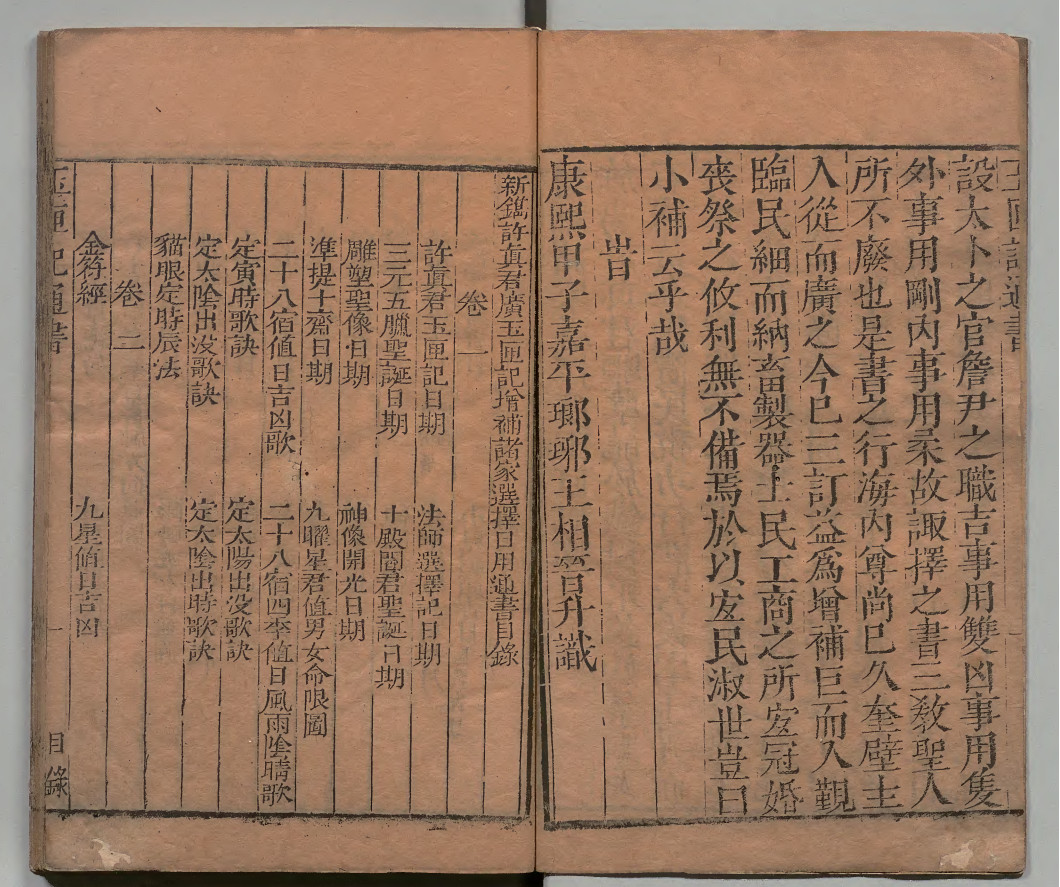 設太卜之官詹尹之職吉事用雙凶事用隻
外事用剛內事用柔故諏擇之書三教聖人
所不廢也是書之行海內尊尚已久奎壁主
人從而廣之今已三訂益為增補巨而入覲
臨民細而納畜製器士民工商之所宜冠婚
喪祭之攸利無不備焉於以宜民淑世豈曰
小補云乎哉
旹
康熙甲子嘉平瑯琊王相晉升識
新鐫許真君廣玉匣記增補諸家選擇日用通書目錄
卷一
許真君玉匣記日期 法師選擇記日期
三元五臘聖誕日期 十殿閻君聖誕日期
雕塑聖像日期 神像開光日期
準提十齋日期 九曜星君值男女命限圖
二十八宿值日吉凶歌 二十八宿四季值日風雨陰晴歌
定寅時歌訣 定太陽出沒歌訣
定太陰出沒歌訣 定太陰出時歌訣
貓眼定時辰法
卷二
金符經 九星值日吉凶
玉匣記通書 目錄 一